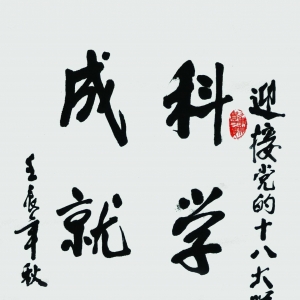 迎接党的十八大
科学
成就
壬辰年秋